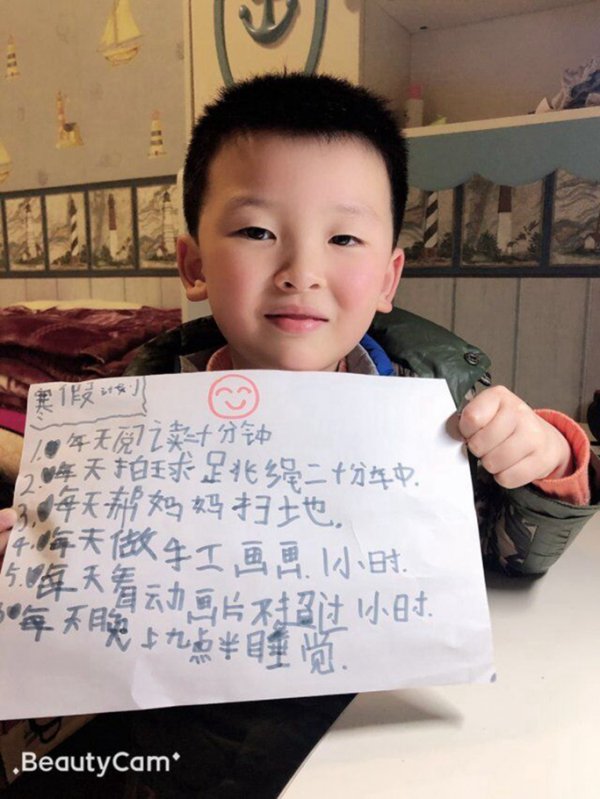 寒假计划
1.每天阅读二十分钟
2.每天拍球跳绳二十分钟.
3.每天帮妈妈扫地.
4.每天做手工画画.1小时.
5.每天看动画片不超过1小时.
6每天晚上九点半睡觉.
.BeautyCam+